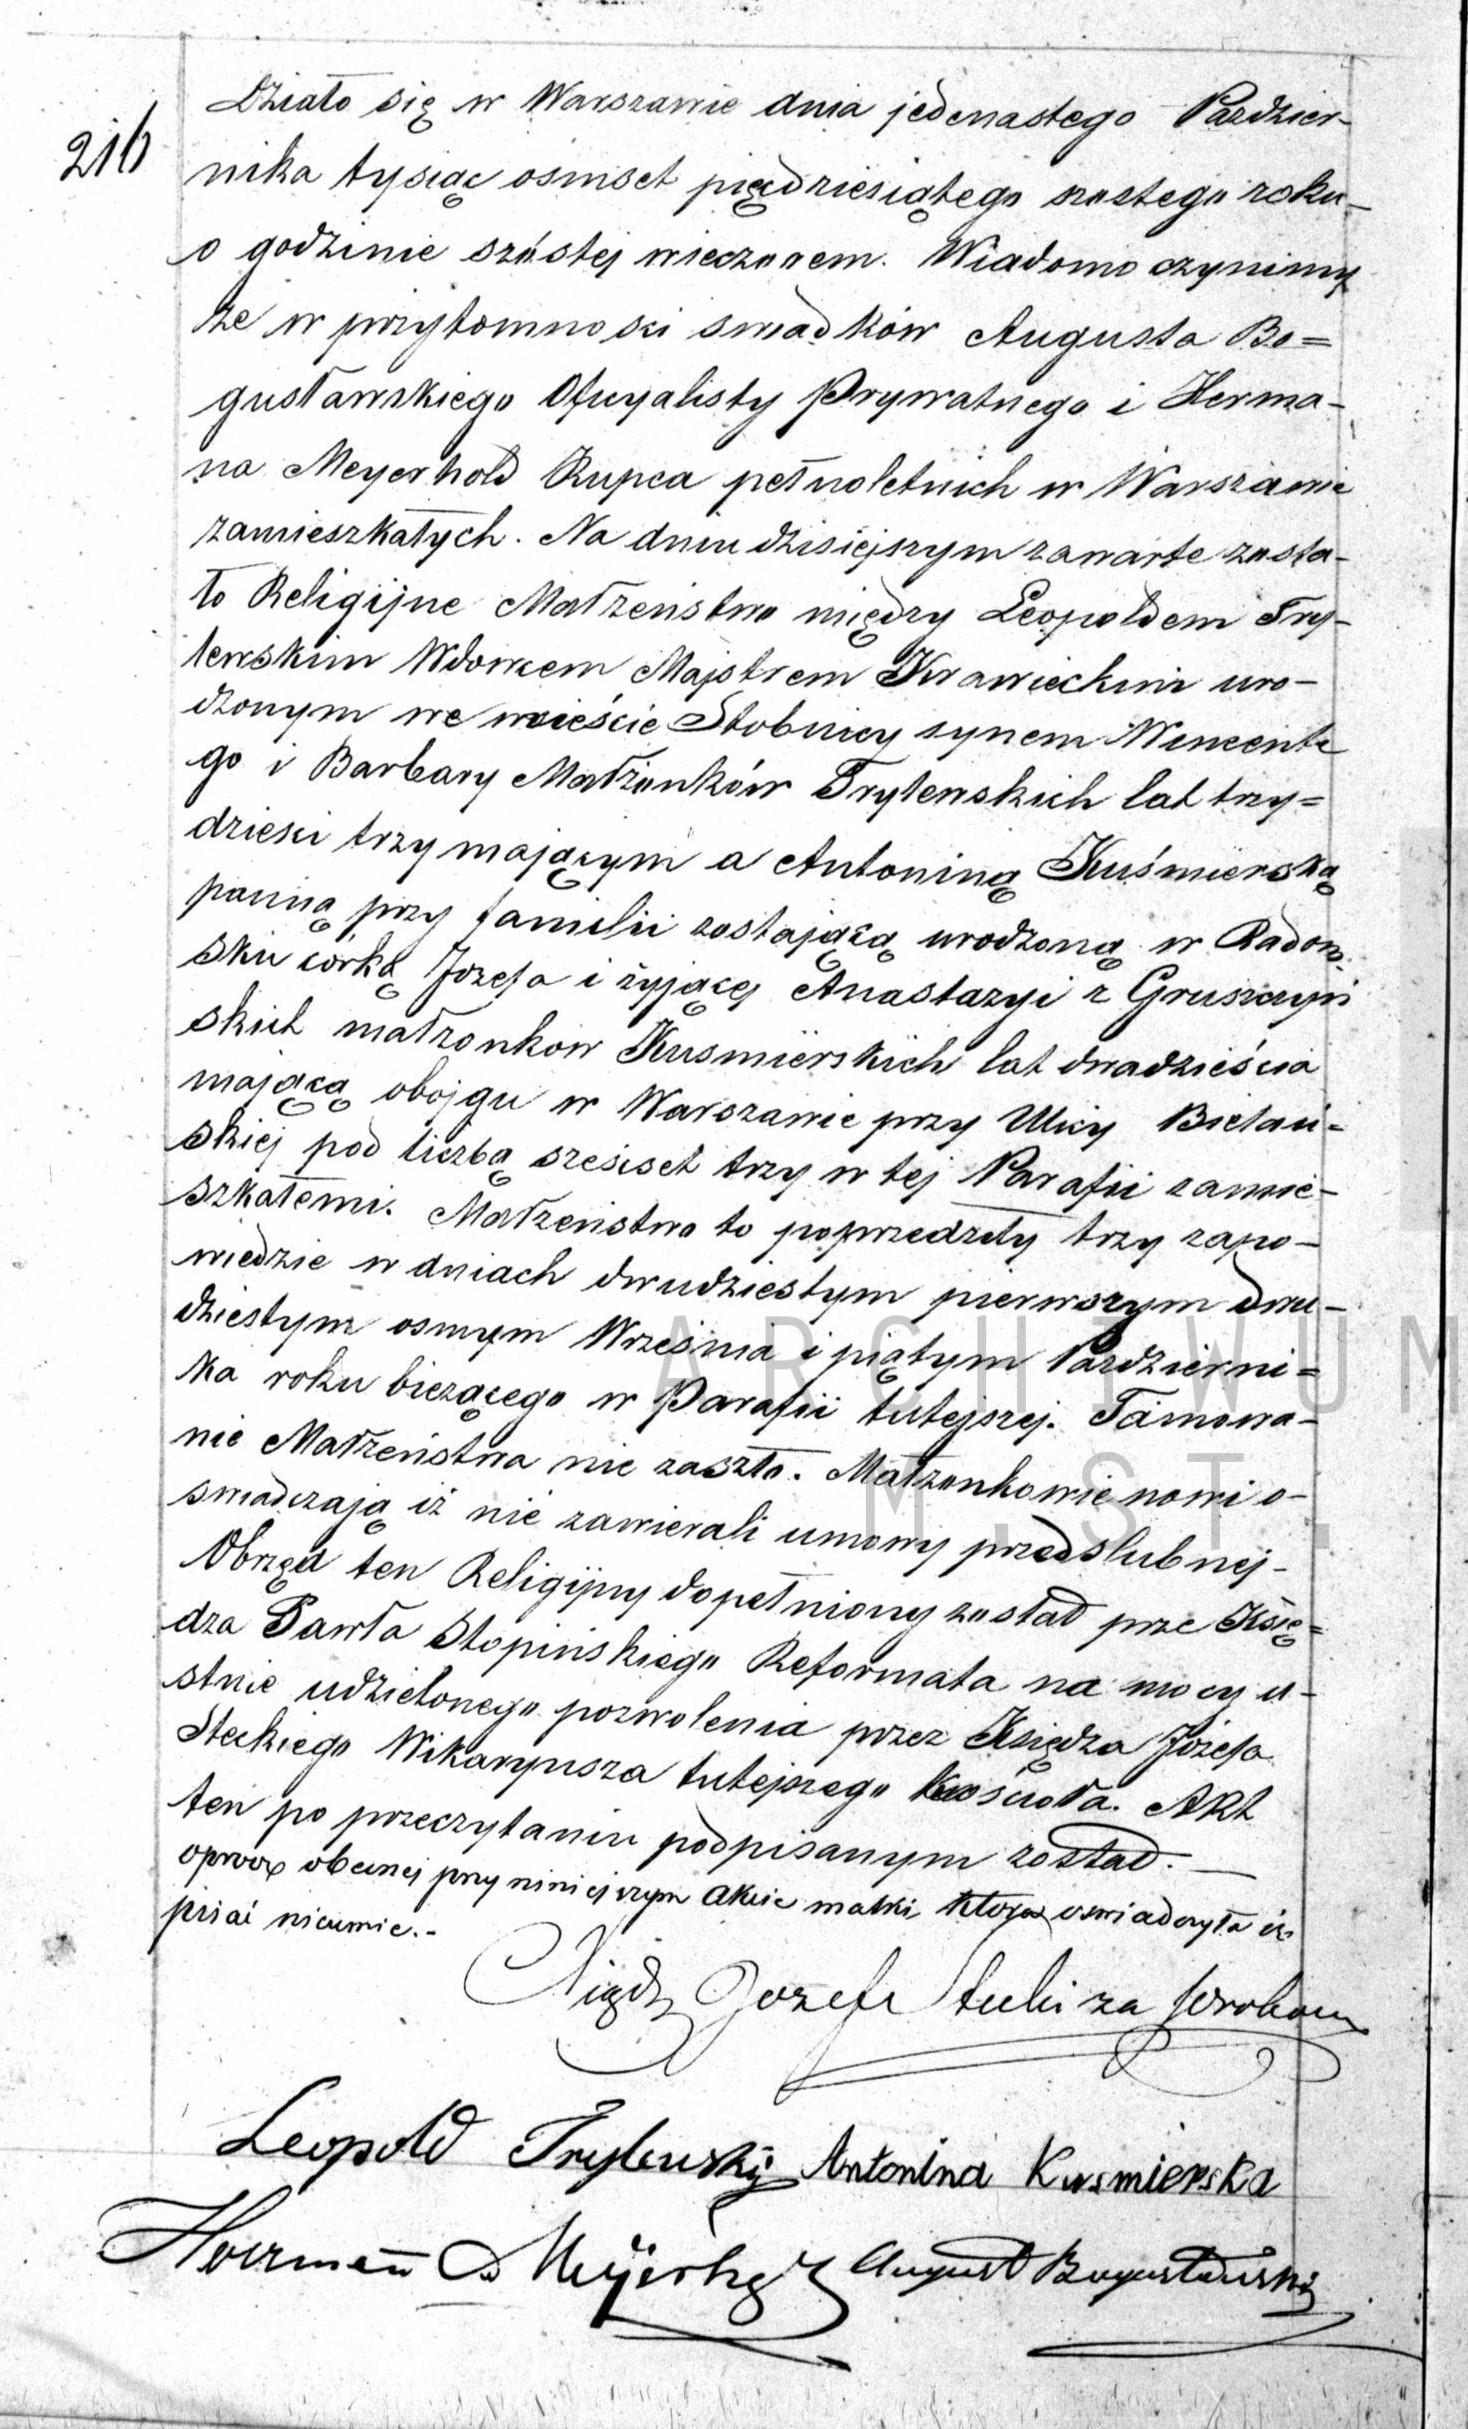 216
Działo się w Warszawie dnia jedenastego Pazdzier-
nika tysiąc osmset pięcdziesiątego szostego roku-
o godzinie szóstej wieczorem. Wiadomo czynimy
że w przytomnosci swiadków Augusta Bo=
gusławskiego Oficyalisty Prywatnego i Herma-
na Meyerhold Kupca pełnoletnich w Warszawie
zamieszkałych. Na dniu dzisiejszym zawarte zosta-
ło Religijne Małżeństwo między Leopoldem Try-
lewskim Wdowcem Majstrem Krawieckim uro-
dzonym we mieście Stobnicy synem Wincente
go i Barbary Małżonków Trylewskich lat trzy=
dzieści trzy mającym a Antoniną Kuśmierską
panną przy familii zostającą urodzoną w Radom
sku córką Jozefa i żyjącej Anastazyi z Gruszczyń
skich małżonkow Kusmierskich lat dwadzieścia
mającą obojgu w Warszawie przy Ulicy Bielań=
skiej pod liczbą szescset trzy w tej Parafii zamie-
szkałemi. Małżeństwo to poprzedziły trzy zapo-
wiedzie w dniach dwudziestym pierwszym dwu-
dziestym osmym Września i piątym Pazdzierni=
ka roku bieżącego w Parafii tutejszej. Tamowa-
nie Małżeństwa nie zaszło. Małżonkowie nowi o-
swiadczają iż nie zawierali umowy przedslubnej-
Obrzęd ten Religijny dopełniony został prze Księ=
dza Pawła Stopińskiego Reformata na mocy u-
stnie udzielonego pozwolenia przez Księdza Józefa
Steckiego Wikaryusza tutejszego Kościoła. Akt
ten po przeczytaniu podpisanym został.—
oprocz obecnej przy niniejszym akcie matki która oswiadczyła iż
pisać nieumie.-
Xiądz Jozef Stecki za
Leopold Trylewski Antonina Kusmierska
Herrmann Meyerhold August Bogusławski
ARCHIWUM
M. ST.